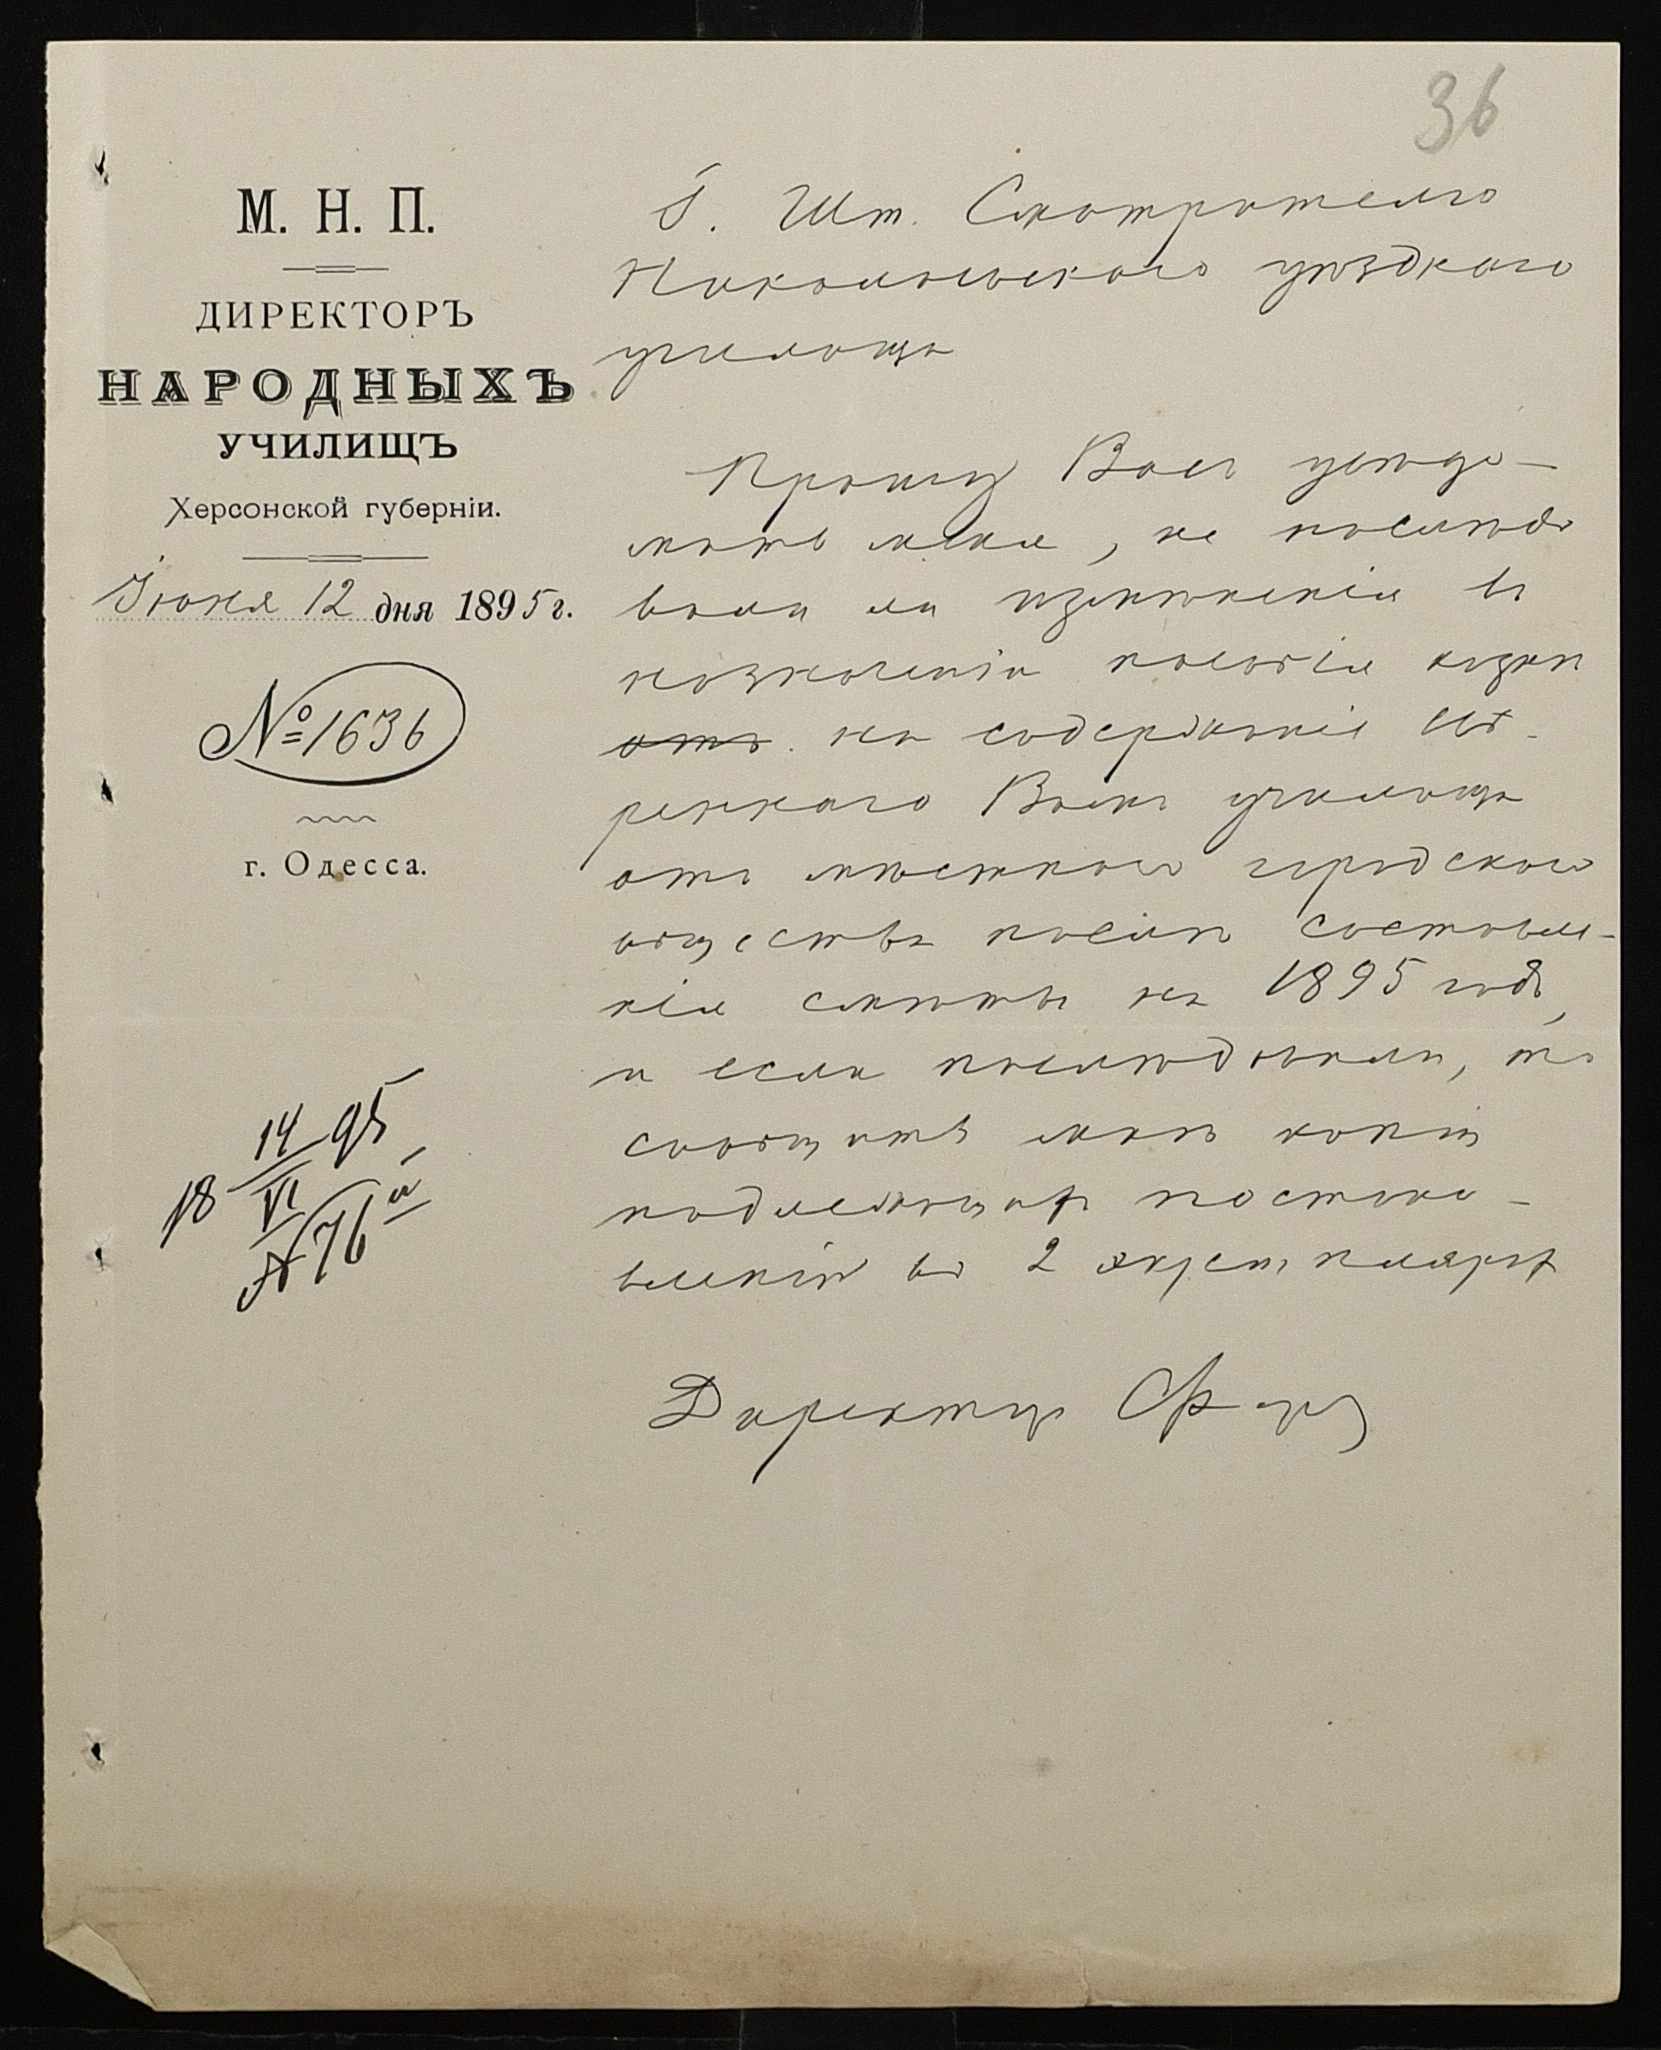 36
М. Н. П.
ДИРЕКТОРЪ
НАРОДНЫХЪ
УЧИЛИЩЪ
Херсонской губерніи.
Іюня 12 дня 1895 г.
№ 1636
г. Одесса.
18 14/VI 95
№ 76 й
Г. Шт. Смотрителю
Николаевскаго уѣзднаго
училища
Прошу Васъ увѣдо-
мить меня, не послѣдо
вали ли измѣненія въ
назначеніи пособія
отъ на содержаніе ввѣ-
реннаго Вамъ училища
отъ мѣстнаго городского
общества послѣ составле-
нія смѣты на 1895 годъ,
и если послѣдовали, то
сообщить мнѣ копіи
подлежащихъ постано-
вленій въ 2 экземплярахъ
Директоръ